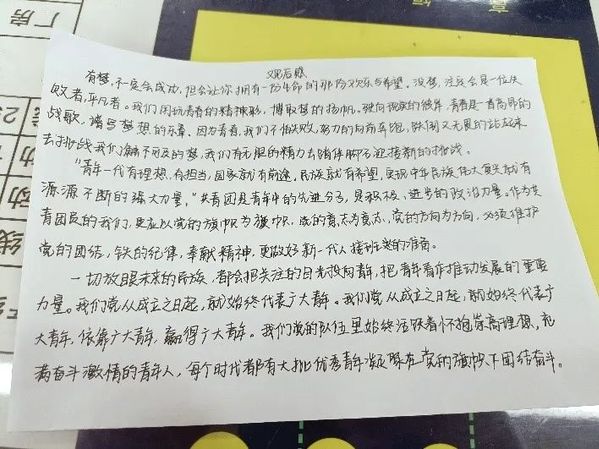 厂房
观后感
有梦,不一定会成功,但会让你拥有一份生命的那份欢乐与希望。没梦,注定会是一位失
败者,平凡者。我们用玩青春的精神影,博取梦的扬帆,驶向现实的彼岸,青春是一首高昂的
战歌,谱写梦想的乐章。因为青春,我们不怕失败,努力的向前奔跑,跌倒又无畏的站起来
去挑战我们触不可及的梦,我们有无限的精力去踏住脚步迎接新的挑战。
"青年一代有理想,有担当,国家就有前途,民族就有希望,实现中华民族伟大复兴就有
源源不断的强大力量,"共青团是青年中的先进分子,是积极、进步的政治力量。作为共
青团员的我们,更应以党的旗帜为旗帜,党的意志为意志,党的方向为方向,必须维护
党的团结,铁的纪律,奉献精神,更做好新一代人接班我的准备。
一切放眼未来的民族,都会把关注的目光投向青年,把青年看作推动发展的重要
力量。我们党从成立之日起,就始终代表广大青年。我们党从成立之日起,就始终代表广
大青年,依靠广大青年,赢得广大青年。我们党的队伍里始终活跃着怀抱崇高理想,充
满奋斗激情的青年人,每个时代都有大批优秀青年凝聚在党的旗帜下团结奋斗。